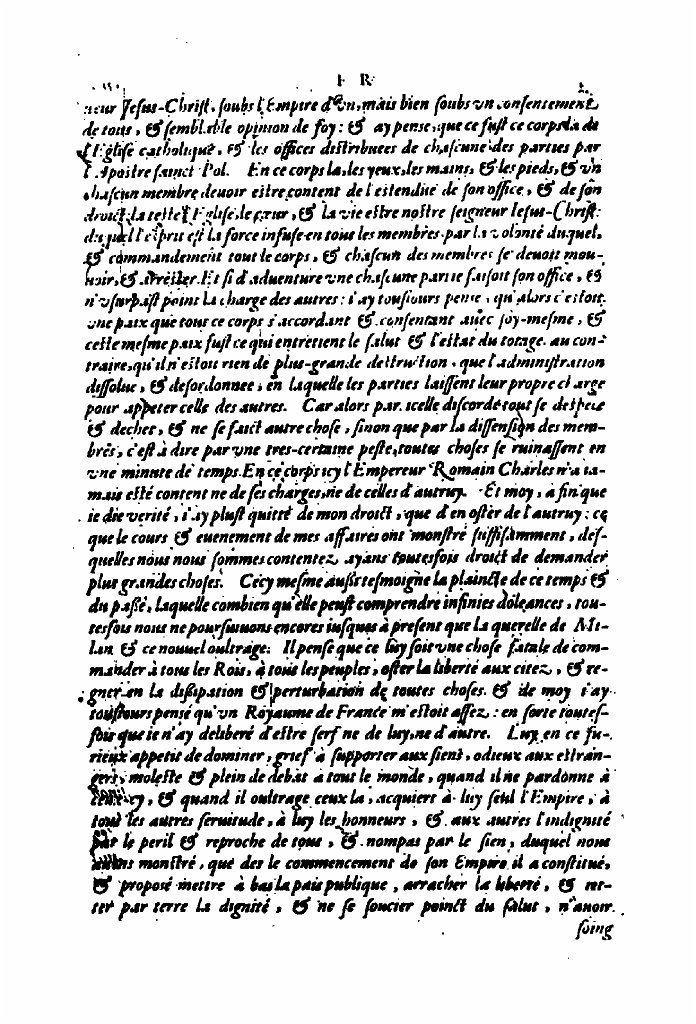 F R
neur Jesus-Christ, soubs l'Empire d'vn, mais bien soubs vn consentement
de tous, & semblable opinion de foy: & ay pense, que ce fust ce corps la de
l'Eglise catholique, & les offices distribuees de chascune des parties par
l'Apostre sainct Pol. En ce corps la, les yeux, les mains, & les pieds, & vn
chascun membre deuoir estre content de l'estendue de son office, & de son
droict: la teste l'Eglise, le cœur, & la vie estre nostre seigneur Iesus-Christ:
duquel l'esprit est la force infuse en tous les membres, par la volonté duquel,
& commandement tout le corps, & chascun des membres se deuoit mou-
uoir, & arrester. Et si d'aduenture vne chascune partie faisoit son office, &
n'vsurpast point la charge des autres: i'ay tousiours pense, qu'alors c'estoit
vne paix que tous ce corps s'accordant & consentant auec soy-mesme, &
ceste mesme paix fust ce qui entretient le salut & l'estat du total: au con-
traire, qu'il n'estoit rien de plus-grande destruction, que l'administration
dissolue, & desordonnee, en laquelle les parties laissent leur propre charge
pour appeter celle des autres. Car alors par icelle discorde tout se despece
& dechet, & ne se faict autre chose, sinon que par la dissension des mem-
bres, c'est à dire par vne tres-certaine peste, toutes choses se ruinassent en
vne minute de temps. En ce corps icy l'Empereur Romain Charles n'a ia-
mais esté content ne de ses charges, ne de celles d'autruy. Et moy, à fin que
ie die verité, i'ay plust quitté de mon droict, que d'en oster de l'autruy: ce
que le cours & euenement de mes affaires ont monstré suffisamment, des-
quelles nous nous sommes contentez, ayans toutesfois droict de demander
plus grandes choses. Cecy mesme aussi tesmoigne la plaincte de ce temps &
du passé, laquelle combien qu'elle peust comprendre infinies doleances, tou-
tesfois nous ne poursuiuons encores iusques à present que la querelle de Mi-
lan & ce nouuel oultrage. Il pense que ce luy soit vne chose fatale de com-
mander à tous les Rois, à tous les peuples, oster la liberté aux citez, & re-
gner en la dissipation & perturbation de toutes choses. & de moy i'ay
tousiours pensé qu'vn Royaume de France m'estoit assez: en sorte toutes-
fois que ie n'ay deliberé d'estre serf ne de luy, ne d'autre. Luy en ce fu-
rieux appetit de dominer, grief à supporter aux siens, odieux aux estran-
gers, moleste & plein de debat à tout le monde, quand il ne pardonne à
cettuy-cy, & quand il oultrage ceux la, acquiert à luy seul l'Empire, à
tous les autres seruitude, à luy les honneurs, & aux autres l'indignité
par le peril & reproche de tous, & nompas par le sien, duquel nous
auons monstré, que des le commencement de son Empire il a constitué,
& proposé mettre à bas la paix publique, arracher la liberté, & iet-
ter par terre la dignité, & ne se soucier poinct du salut, n'auoir
soing